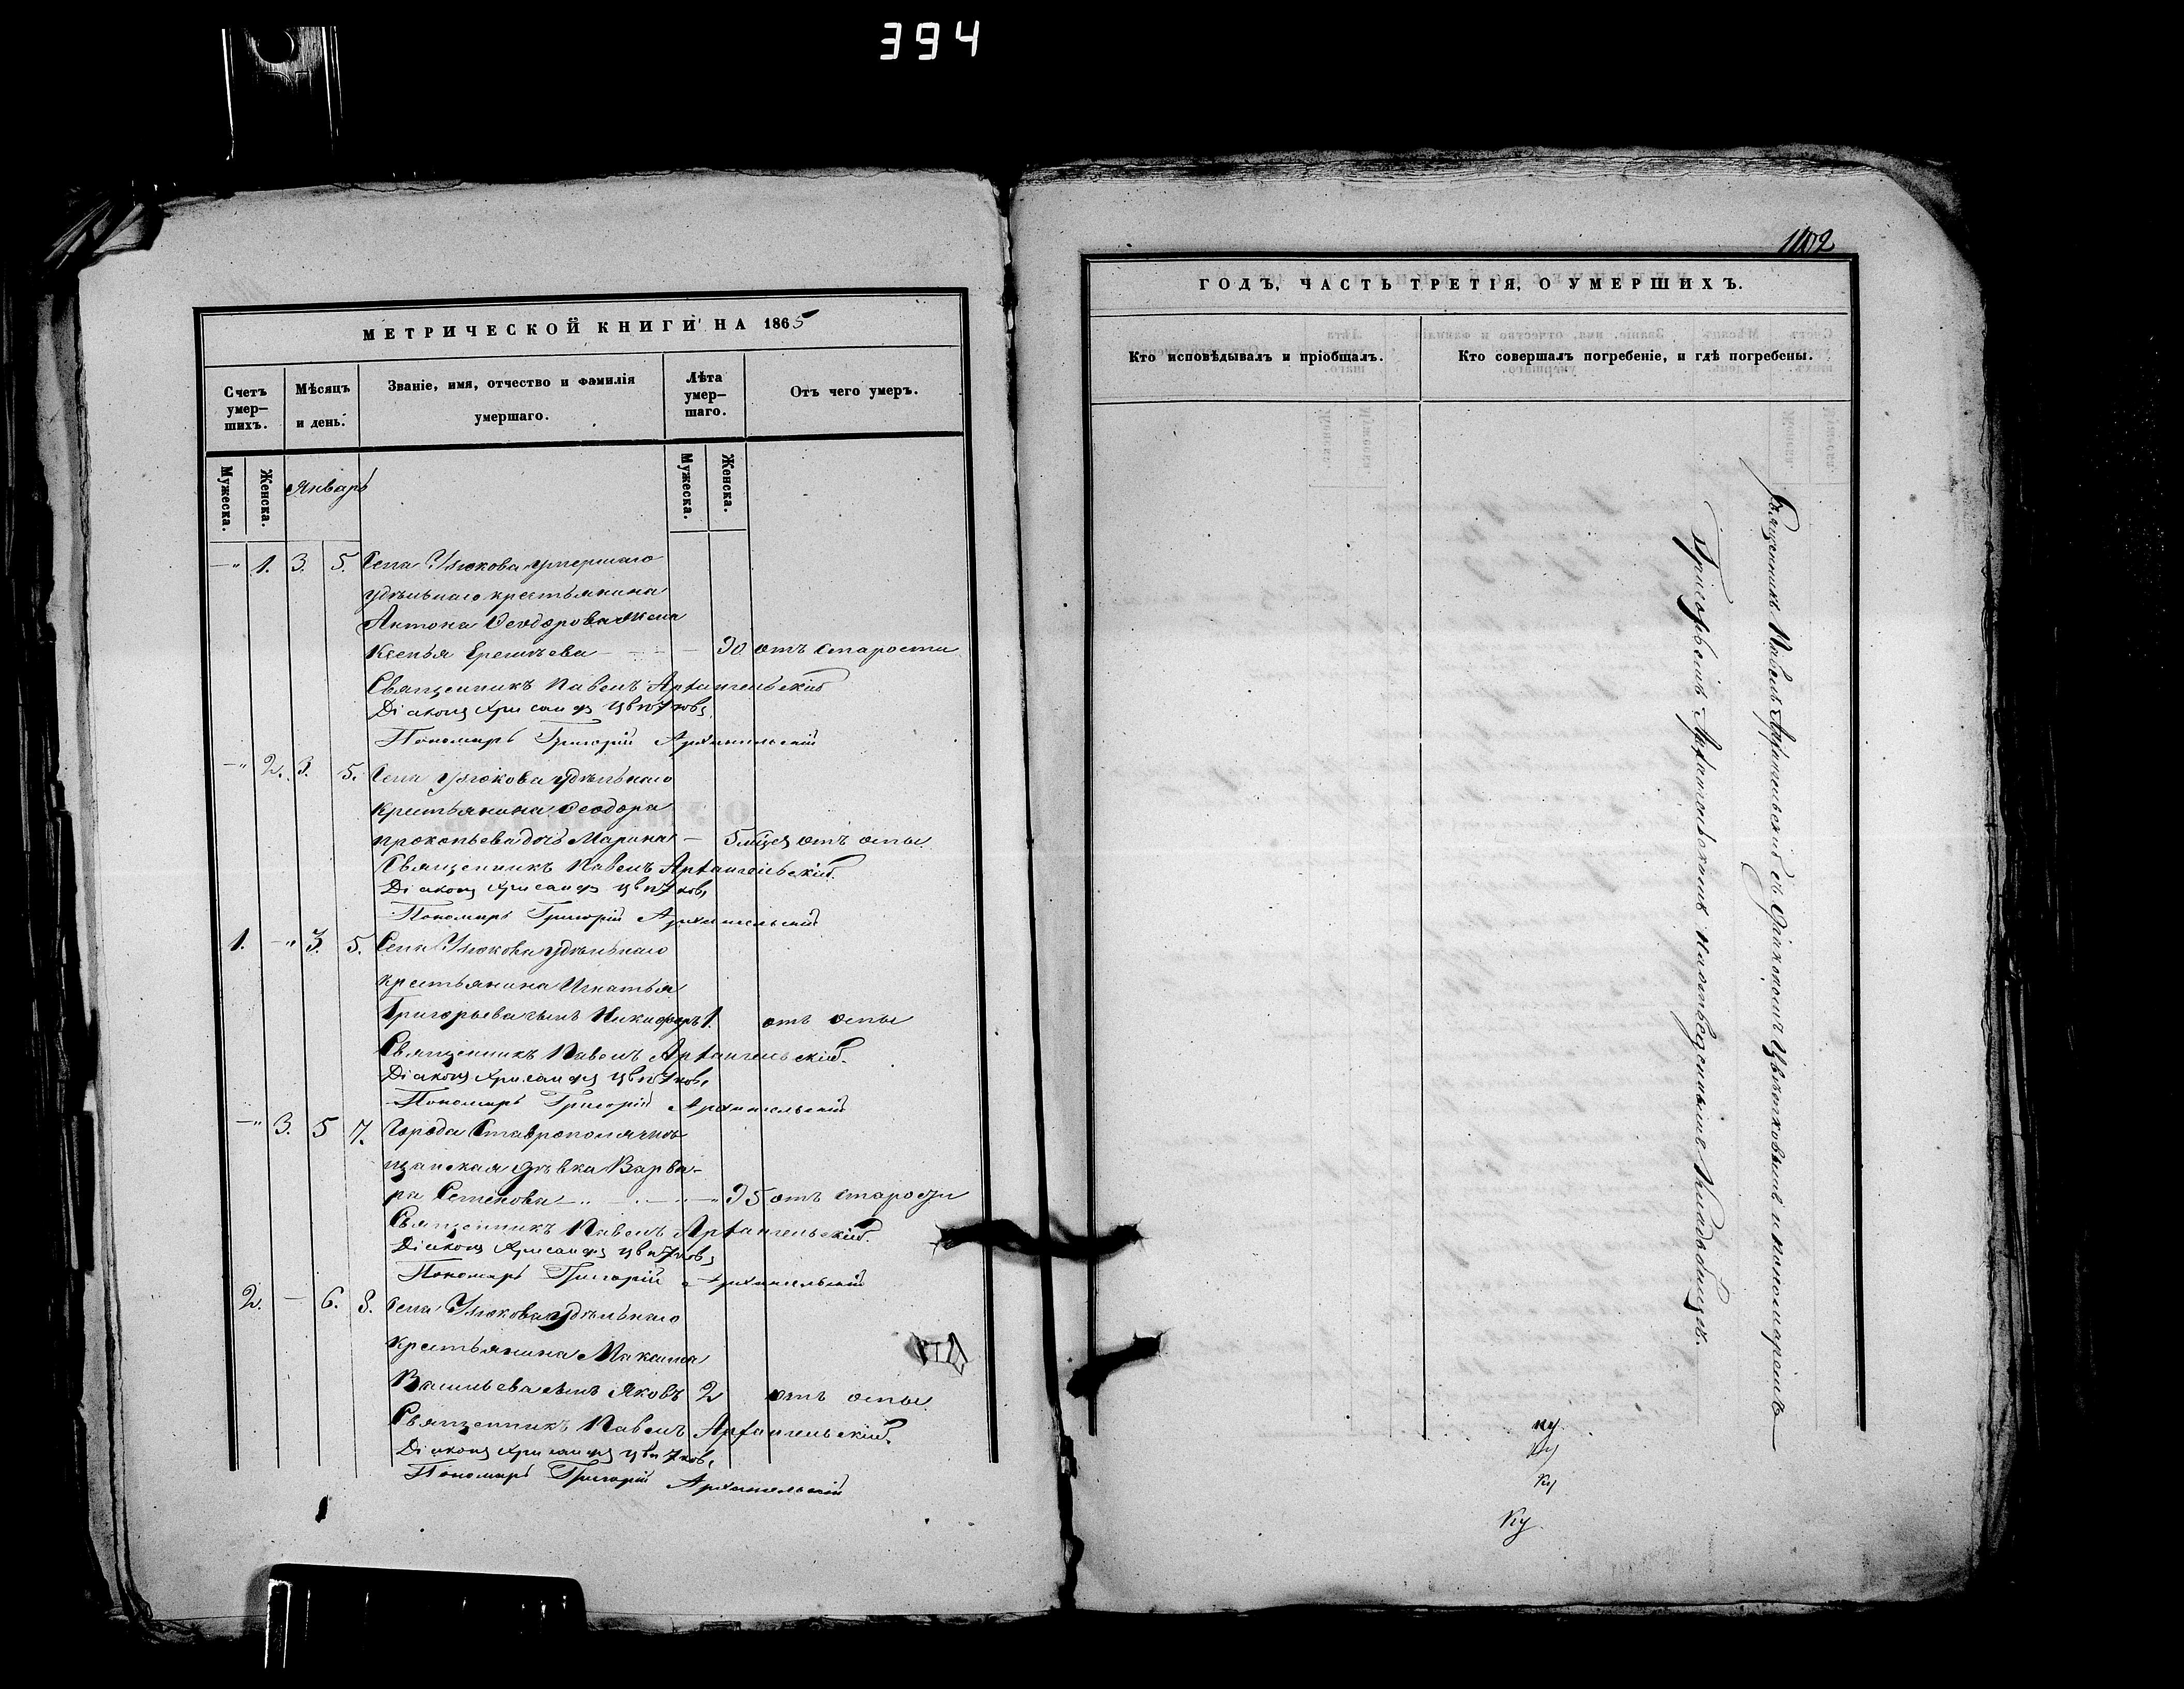 394
МЕТРИЧЕСКОЙ КНИГИ НА 1865
Счетъ умер-шихъ.
Мѣсяцъ и день.
Званіе, имя, отчество и фамилія умершаго.
Лѣта умер-шаго.
Отъ чего умеръ.
Мужеска.
Женска.
Январь
Мужеска.
Женска.
—" 1. 3. 5. Села Узюкова умершаго
удѣльнаго крестьянина
Антона Ѳеодорова жена
Ксенья Еремѣева — 90 отъ старости
Священникъ Павелъ Архангельскій
Діаконъ Хрисанфъ Цвѣтковъ
Пономарь Григорій Архангельскій
—" 2. 3. 5. Села Узюкова удѣльнаго
крестьянина Ѳеодора
Прокопьева дочь Марина — 5 мѣся отъ оспы
Священникъ Павелъ Архангельскій.
Діаконъ Хрисанфъ Цвѣтковъ
Пономарь Григорій Архангельскій
1. —" 3. 5. Села Узюкова удѣльнаго
крестьянина Игнатья
Григорьева сынъ Никифоръ 1. отъ оспы
Священникъ Павелъ Архангельскій.
Діаконъ Хрисанфъ Цвѣтковъ
Пономарь Григорій Архангельскій
—" 3. 5 7. Города Ставрополя мѣ
щанская дѣвка Варва-
ра Семенова — 95 отъ старости
Священникъ Павелъ Архангельскій.
Діаконъ Хрисанфъ Цвѣтковъ
Пономарь Григорій Архангельскій
2. — 6. 8. Села Узюкова удѣльнаго
крестьянина Максима
Васильева сынъ Яковъ 2 отъ оспы
Священникъ Павелъ Архангельскій.
Діаконъ Хрисанфъ Цвѣтковъ
Пономарь Григорій Архангельскій
1102
ГОДЪ, ЧАСТЬ ТРЕТІЯ, О УМЕРШИХЪ.
Кто исповѣдывалъ и пріобщалъ.
Кто совершалъ погребеніе, и гдѣ погребены.
Священникъ Павелъ Архангельскій съ Діакономъ Цвѣтковымъ и пономаремъ
Григорьемъ Архангельскимъ на отведенномъ кладбищѣ.
ку
ку
ку
ку.